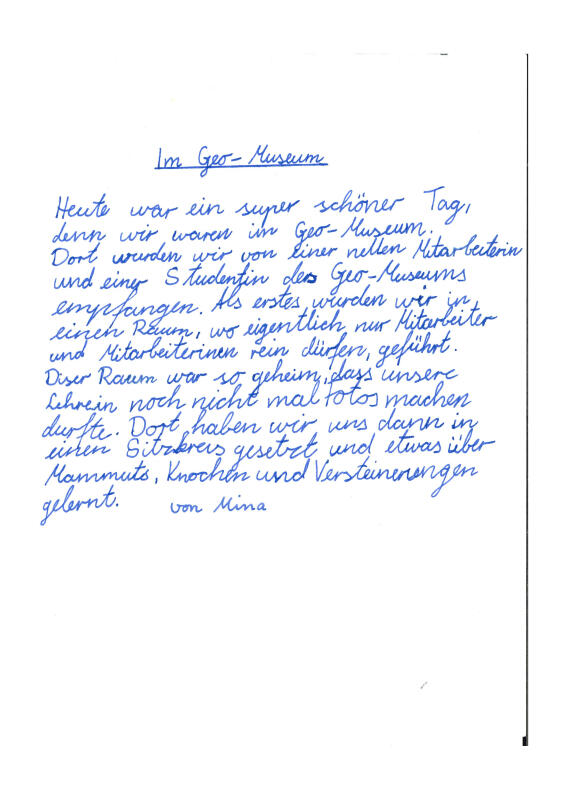 Im Geo-Museum
Heute war ein super schöner Tag,
denn wir waren im Geo-Museum.
Dort wurden wir von einer netten Mitarbeiterin
und einer Studentin des Geo-Museums
empfangen. Als erstes wurden wir in
einen Raum, wo eigentlich nur Mitarbeiter
und Mitarbeiterinen rein dürfen, geführt.
Diser Raum war so geheim, dass unsere
Lehrein noch nicht mal Fotos machen
durfte. Dort haben wir uns dann in
einen Sitzkreis gesetzt und etwas über
Mammuts, Knochen und Versteinerungen
gelernt. von Mina